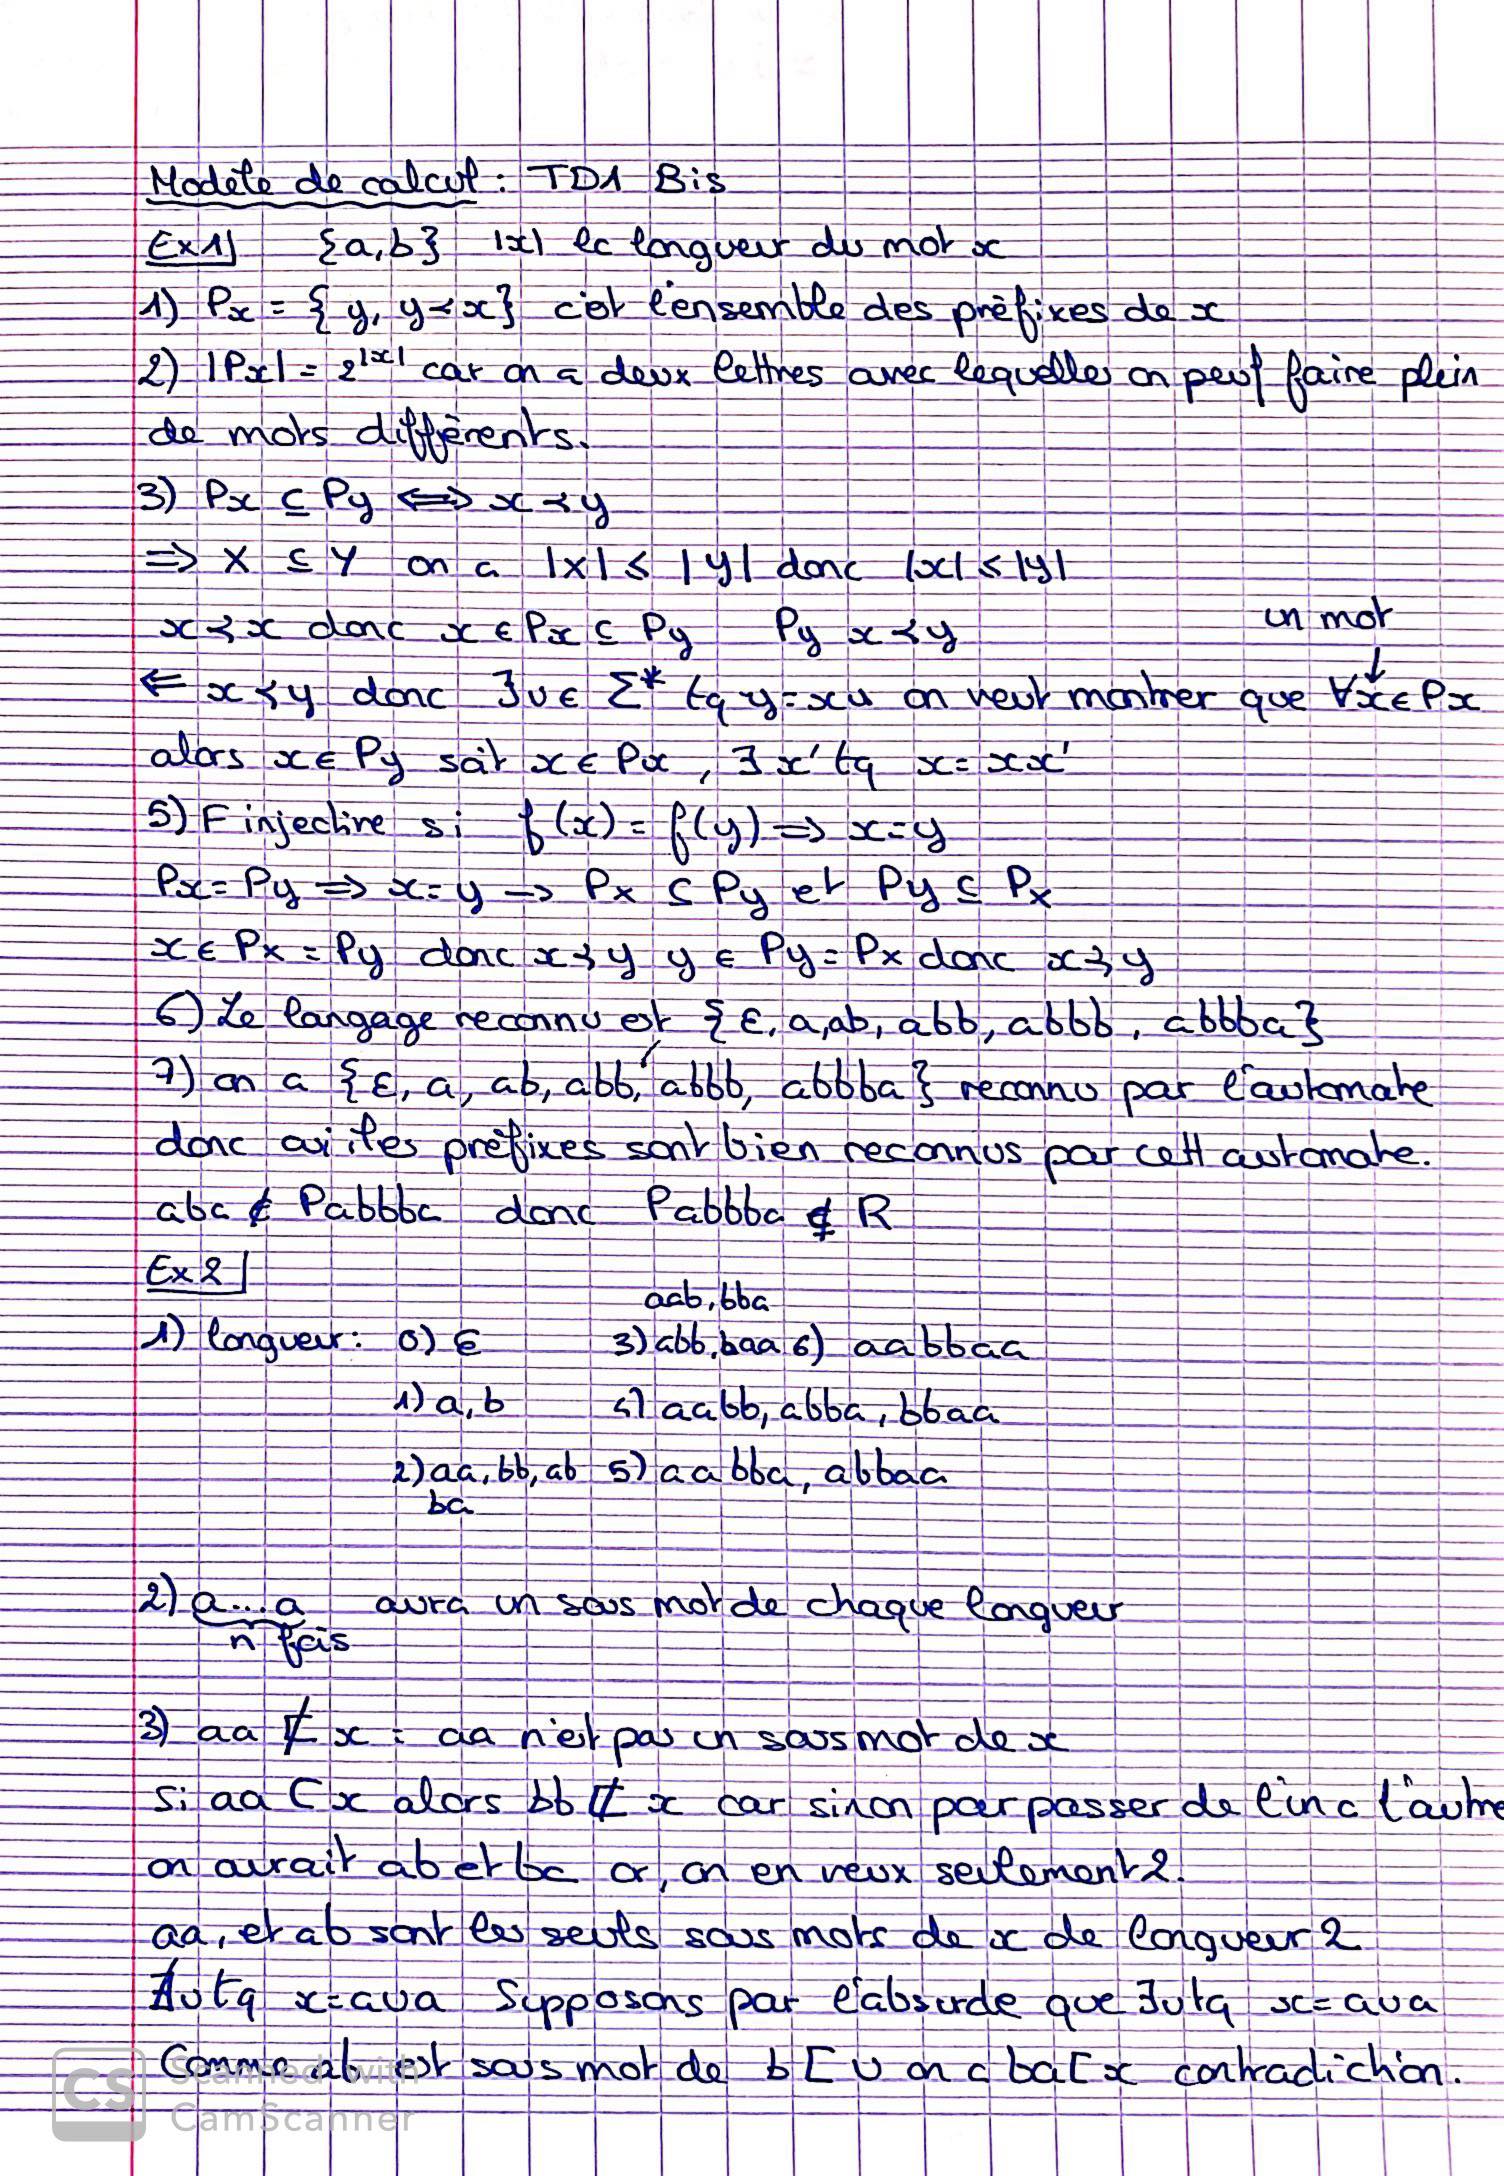 Modèle de calcul : TD1 Bis
Ex 1 {a,b} |x| la longueur du mot x
1) Px = { y, y≺x} c'est l'ensemble des préfixes de x
2) |Px| = 2^|x| car on a deux lettres avec lequelles on peut faire plein
de mots différents.
3) Px ⊆ Py ⟺ x ≺ y
⟹ X ⊆ Y on a |X| ≤ |Y| donc |x| ≤ |y|
x ≺ x donc x ∈ Px ⊆ Py Py x ≺ y
un mot
↓
⇐ x ≺ y donc ∃ u ∈ Σ* tq y = xu on veut montrer que ∀x ∈ Px
alors x ∈ Py soit x ∈ Px , ∃ x' tq x = xx'
5) F injective si f(x) = f(y) ⟹ x=y
Px = Py ⟹ x = y → Px ⊆ Py et Py ⊆ Px
x ∈ Px = Py donc x ≺ y y ∈ Py = Px donc x ≻ y
6) Le langage reconnu est {ε, a, ab, abb, abbb, abbba}
7) on a {ε, a, ab, abb, abbb, abbba} reconnu par l'automate
donc les préfixes sont bien reconnus par cett automate.
aba ∉ Pabbba donc Pabbba ∉ R
Ex 2
aab, bba
1) longueur : 0) ε 3) abb, baa 6) aabbaa
1) a, b 4) aabb, abba, bbaa
2) aa, bb, ab 5) aabba, abbaa
ba
2) a...a aura un sous mot de chaque longueur
n fois
3) aa ⊄ x : aa n'est pas un sous mot de x
Si aa ⊂ x alors bb ⊄ x car sinon pour passer de l'un a l'autre
on aurait ab et ba or, on en veux seulement 2.
aa, et ab sont les seuls sous mots de x de longueur 2
∄ u tq x = aua Supposons par l'absurde que ∃ u tq x = aua
Comme ab est sous mot de b ⊏ u on a ba ⊏ x contradiction.
CS Scanned with
CamScanner